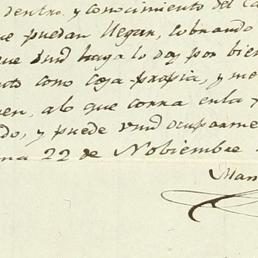 dentro y conocimiento del Ca
ue puedan llegar, cobrando
que vmd haga lo doy por bien
to como cosa propia, y me
en, alo que corra en la
do, y puede vmd ocuparme
na 22 de Nobiembre
Man